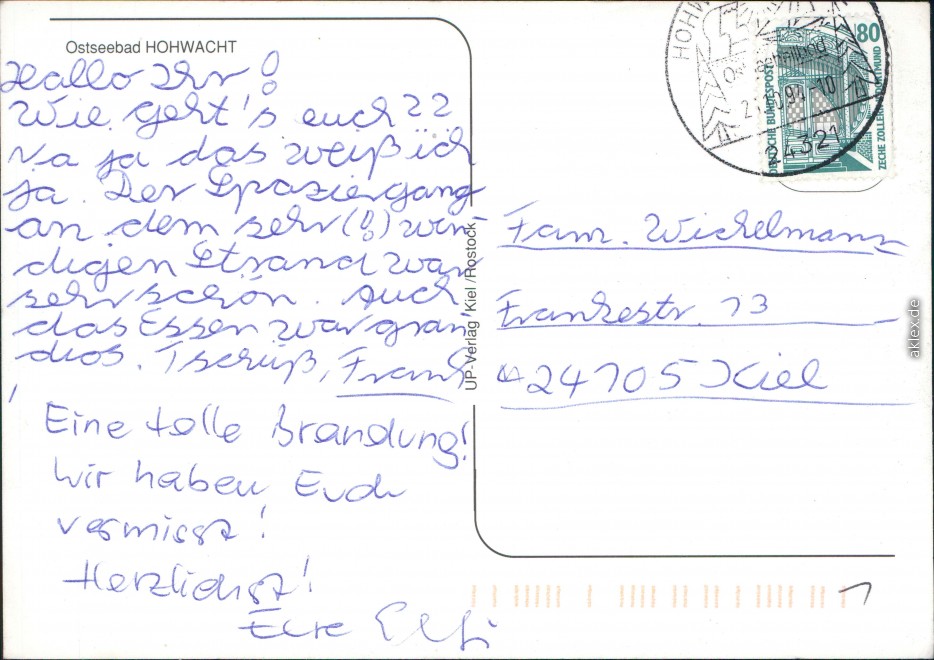 Ostseebad HOHWACHT
Hallo Ihr!
Wie geht's euch??
Na ja das weiß ich
ja. Der Spaziergang
an dem sehr(!) win-
digen Strand war
sehr schön. Auch
das Essen war gran-
dios. Tschüß, Frank
Eine tolle Brandung!
Wir haben Euch
vermisst!
Herzlichst!
Eure Elfi
UP-Verlag Kiel/Rostock
HOHW
4321
80
DEUTSCHE BUNDESPOST
ZECHE ZOLLERN DORTMUND
Fam. Wichelmann
Frankestr. 13
24105 Kiel
aklex.de